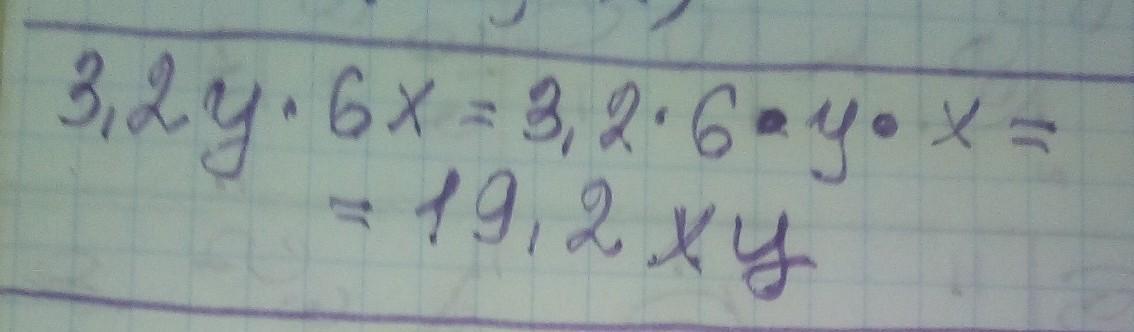 3,2y · 6x = 3,2 · 6 · y · x =
= 19,2 xy